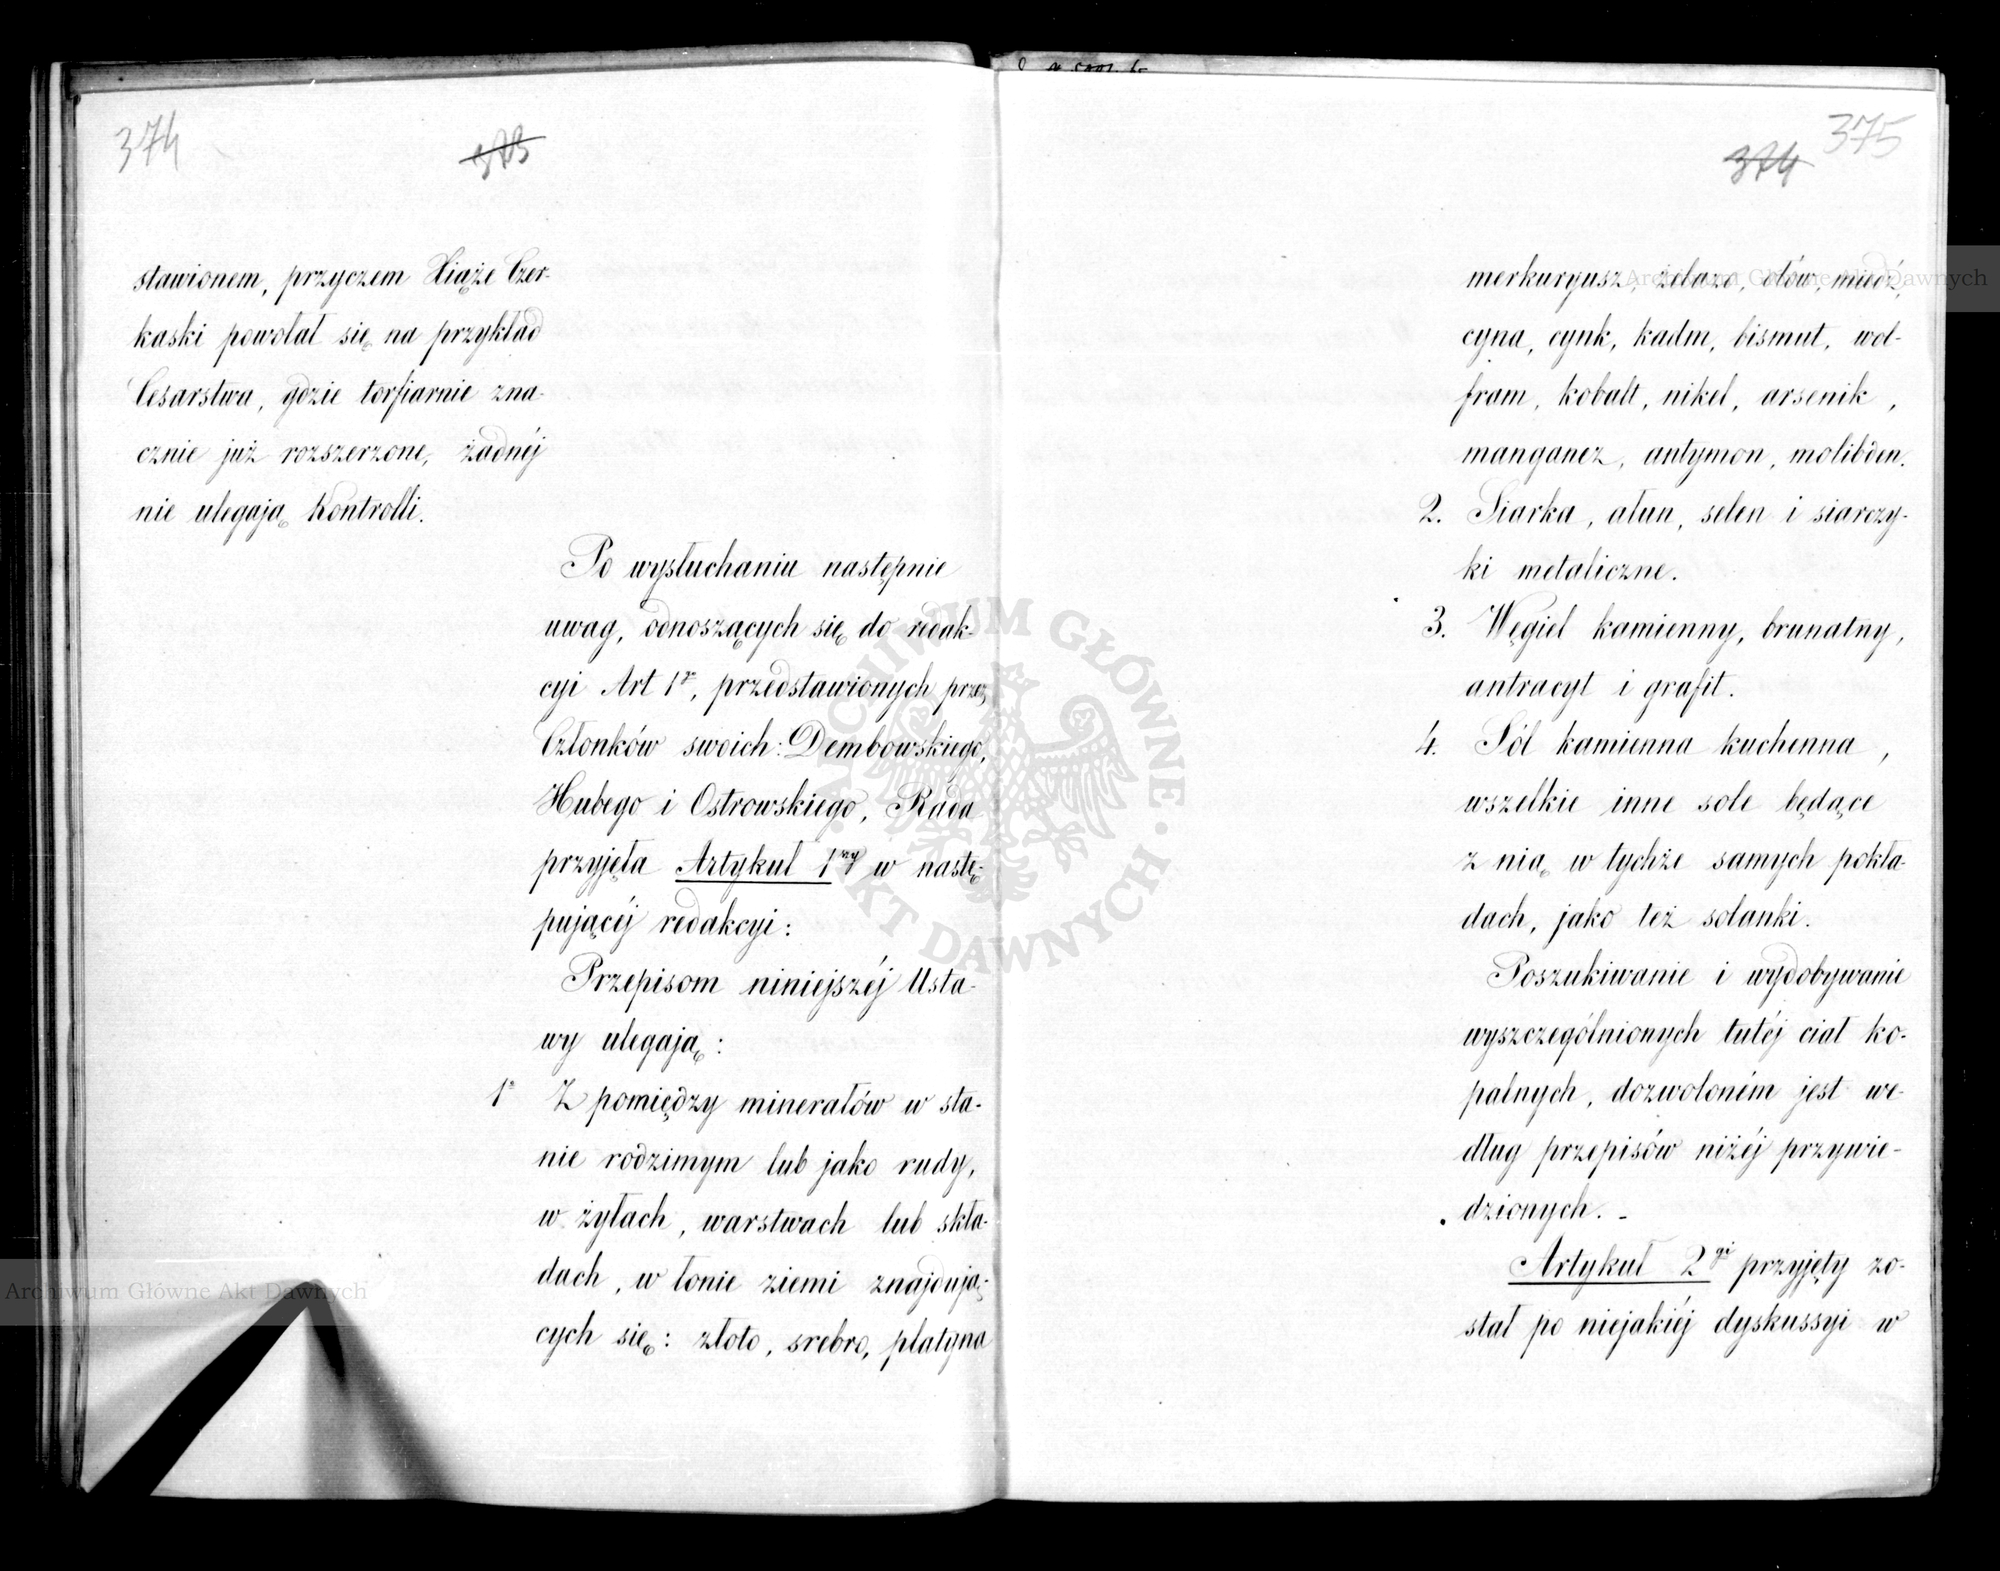 374
373
stawionem, przyczem Xiąże Czer-
kaski powołał się na przykład
Cesarstwa, gdzie torfiarnie zna-
cznie już rozszerzone, żadnéj
nie ulegają kontrolli.
Po wysłuchaniu następnie
uwag, odnoszących się do redak-
cyi Art 1º, przedstawionych przez
Członków swoich: Dembowskiego,
Hubego i Ostrowskiego, Rada
przyjęła Artykuł 1szy w nastę-
pującéj redakcyi:
Przepisom niniejszéj Usta-
wy ulegają:
1º Z pomiędzy minerałów w sta-
nie rodzimym lub jako rudy,
w żyłach, warstwach lub skła-
dach, w łonie ziemi znajdują-
cych się: złoto, srebro, platyna
375
374
merkuryusz, żelazo, ołów, miedź,
cyna, cynk, kadm, bismut, wol-
fram, kobalt, nikel, arsenik,
manganez, antymon, molibden.
2. Siarka, ałun, selen i siarczy-
ki metaliczne.
3. Węgiel kamienny, brunatny,
antracyt i grafit.
4. Sól kamienna kuchenna,
wszelkie inne sole będące
z nią w tychże samych pokła-
dach, jako też solanki.
Poszukiwanie i wydobywanie
wyszczególnionych tutéj ciał ko-
palnych, dozwoloném jest we-
dług przepisów niżéj przywie-
dzionych. -
Artykuł 2gi przyjęty zo-
stał po niejakiéj dyskussyi w
ARCHIWUM GŁÓWNE · AKT DAWNYCH ·
Archiwum Główne Akt Dawnych
Archiwum Główne Akt Dawnych